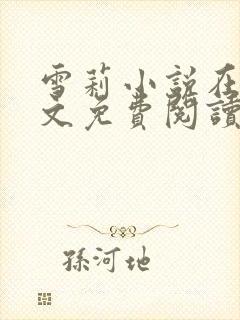 雪莉小說在
文免費閱讀
孫河地